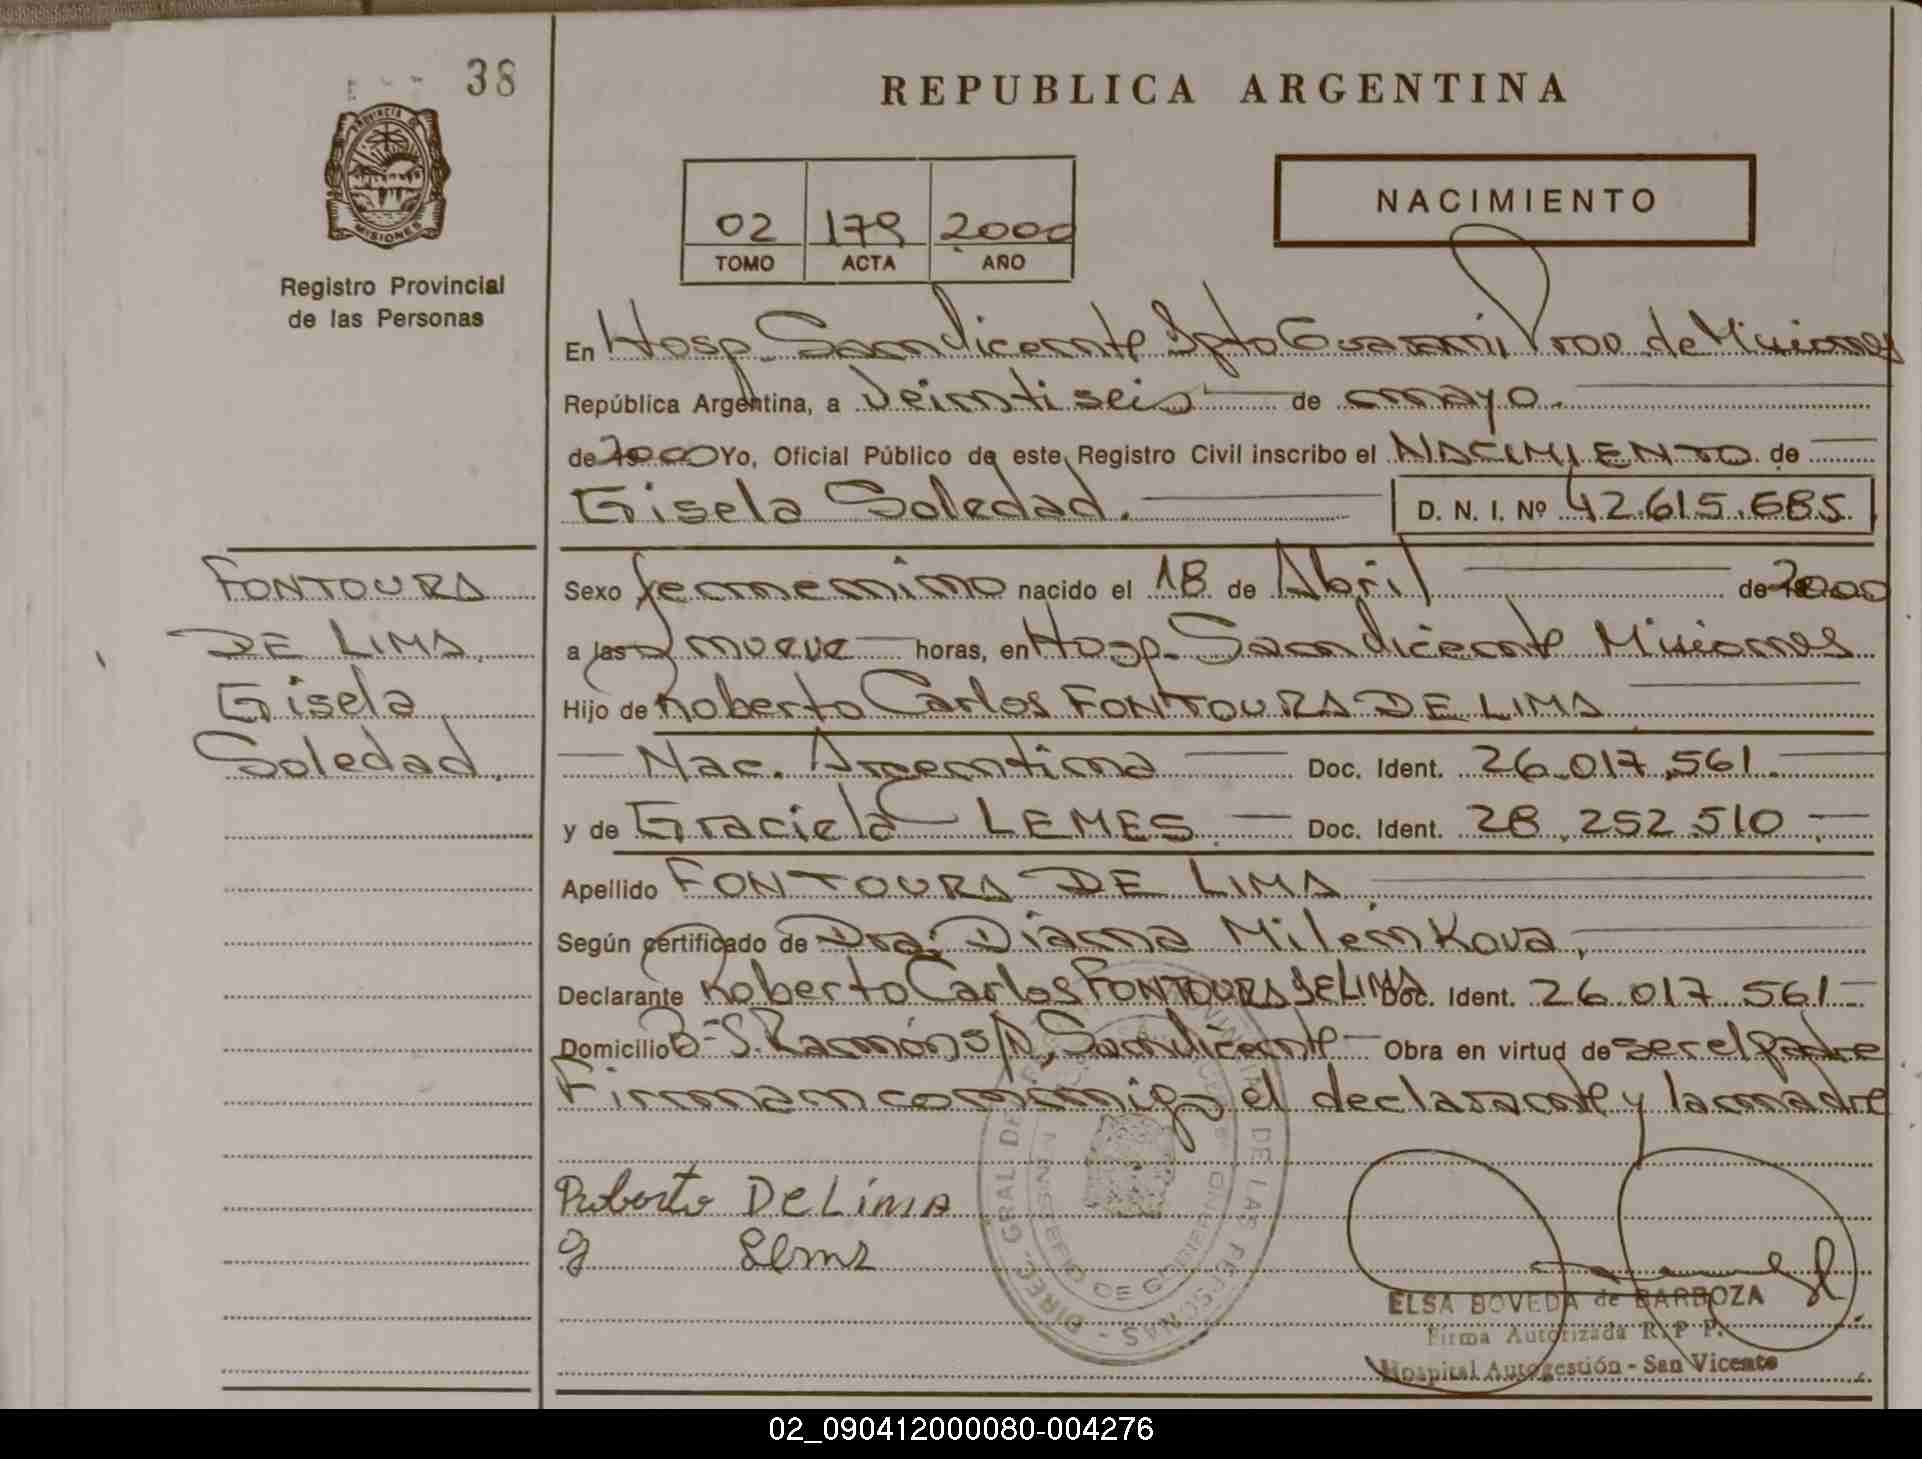 38
REPUBLICA ARGENTINA
PROVINCIA DE
MISIONES
Registro Provincial
de las Personas
02 179 2000
TOMO ACTA AÑO
NACIMIENTO
En Hosp. San Vicente Dpto Guaraní, Prov. de Misiones
República Argentina, a veintiseis de mayo.
de 2000 Yo, Oficial Público de este Registro Civil inscribo el NACIMIENTO de
Gisela Soledad. D. N. I. Nº 42.615.685
FONTOURA
DE LIMA
Gisela
Soledad.
Sexo femenino nacido el 18 de Abril de 2000
a las nueve horas, en Hosp. San Vicente Misiones
Hijo de Roberto Carlos FONTOURA DE LIMA
Nac. Argentina Doc. Ident. 26.017.561
y de Graciela LEMES Doc. Ident. 28.252.510
Apellido FONTOURA DE LIMA
Según certificado de Dra. Diana Milenkova,
Declarante Roberto Carlos FONTOURA DE LIMA Doc. Ident. 26.017.561
Domicilio Bº S. Ramón S/N, San Vicente Obra en virtud de ser el padre
Firman conmigo el declarante y la madre
Roberto De Lima
g Lems
ELSA BOVEDA de BARBOZA
Firma Autorizada R. P. P.
Hospital Autogestión - San Vicente
02_090412000080-004276